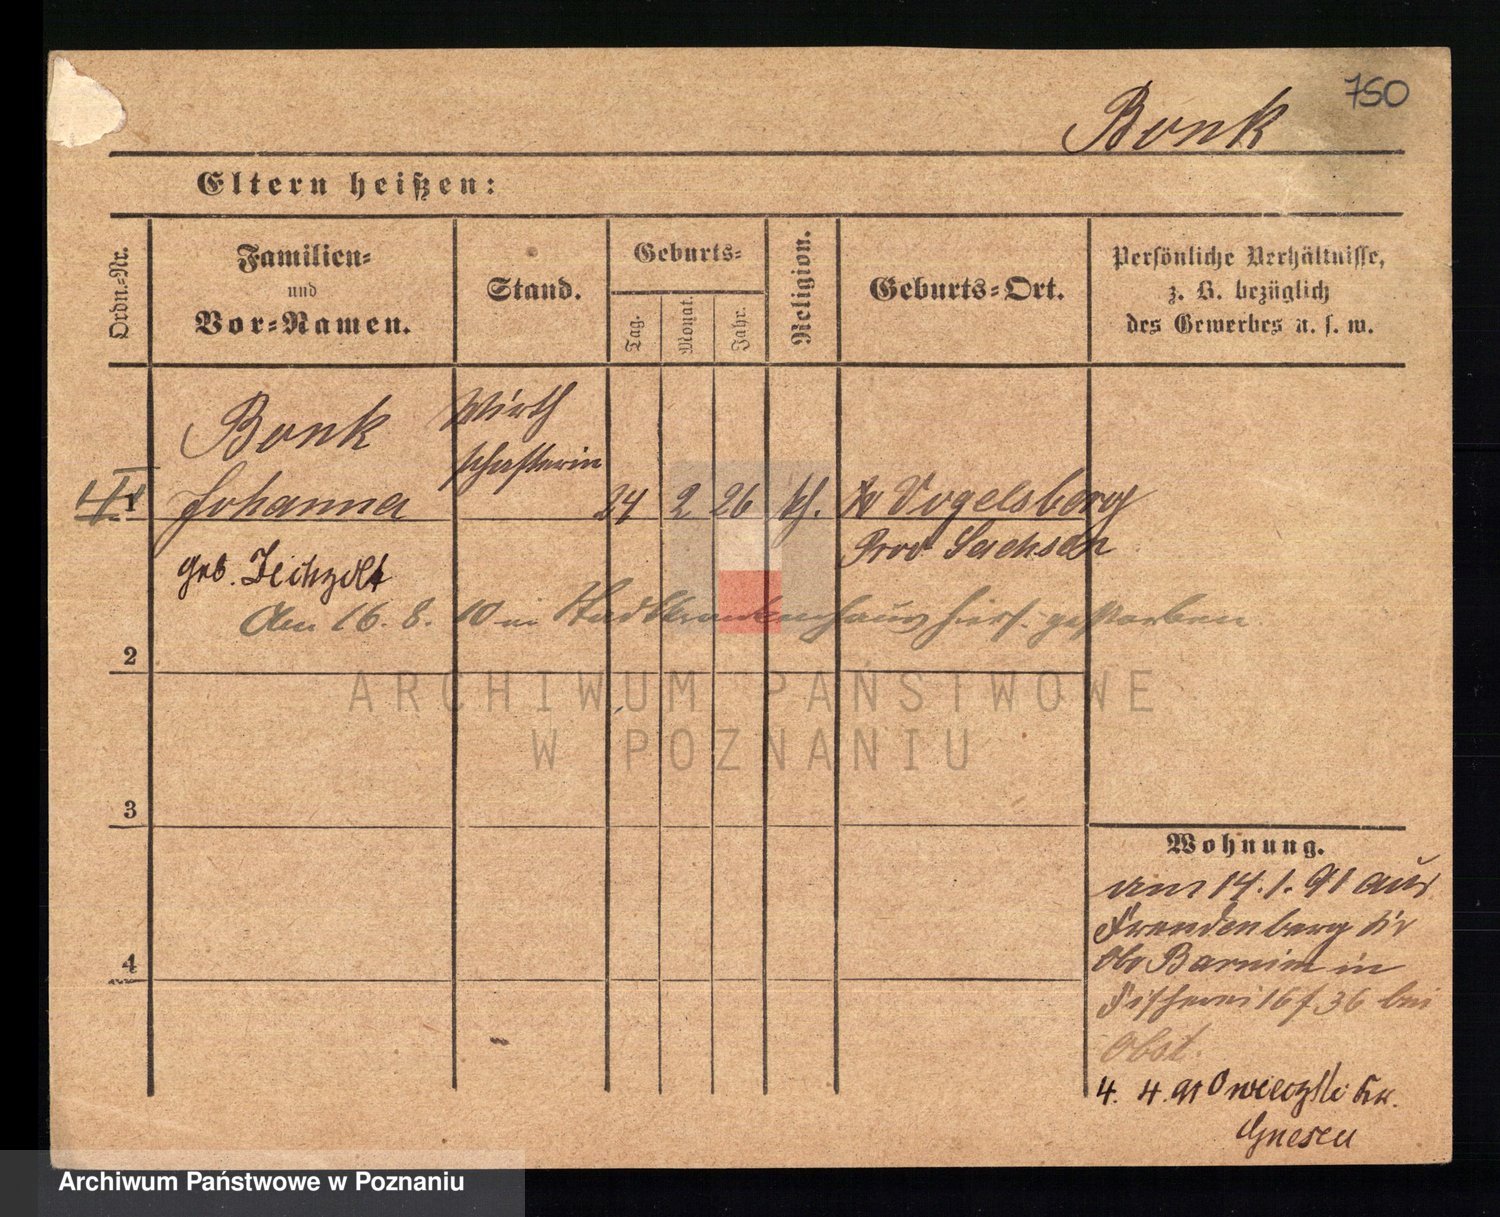 750
Bonk
Eltern heißen:
Ordn.-Nr.
Familien-
und
Vor-Namen.
Stand.
Geburts-
Tag.
Monat.
Jahr.
Religion.
Geburts-Ort.
Persönliche Verhältnisse,
z. B. bezüglich
des Gewerbes u. s. w.
Bonk Wirth
schafterin
1 Johanna 24 2 26 Vogelsberg
Prov Sachsen
geb.
Am 16. 8. 10 im Stadtkrankenhaus hiers. gestorben.
2
ARCHIWUM PAŃSTWOWE
W POZNANIU
3
Wohnung.
am 14.1.91 aus
Freudenberg Kr
Obr Barnim in
Fischerei 16 f 36 bei
Obst.
4
4. 4. 91 Kr.
Gnesen
Archiwum Państwowe w Poznaniu